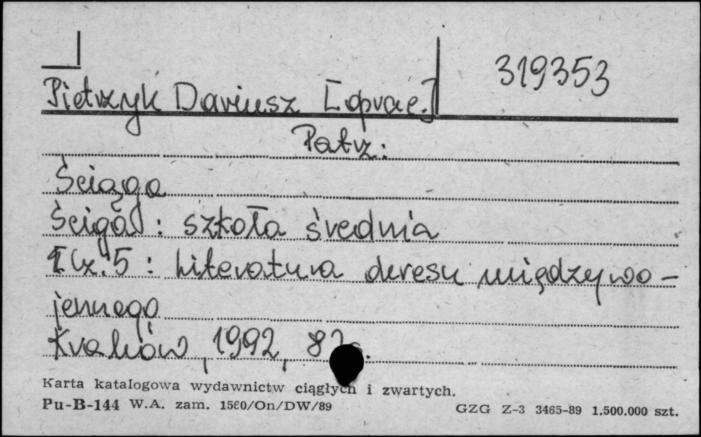 319353
Pietrzyk Dariusz [oprac.]
Patrz:
Ściąga
: szkoła średnia
Cz. 5 : Literatura okresu międzywo-
jennego
Kraków, 1992, 8
Karta katalogowa wydawnictw ciągłych i zwartych.
Pu-B-144 W.A. zam. 1560/On/DW/89
GZG Z-3 3465-89 1.500.000 szt.